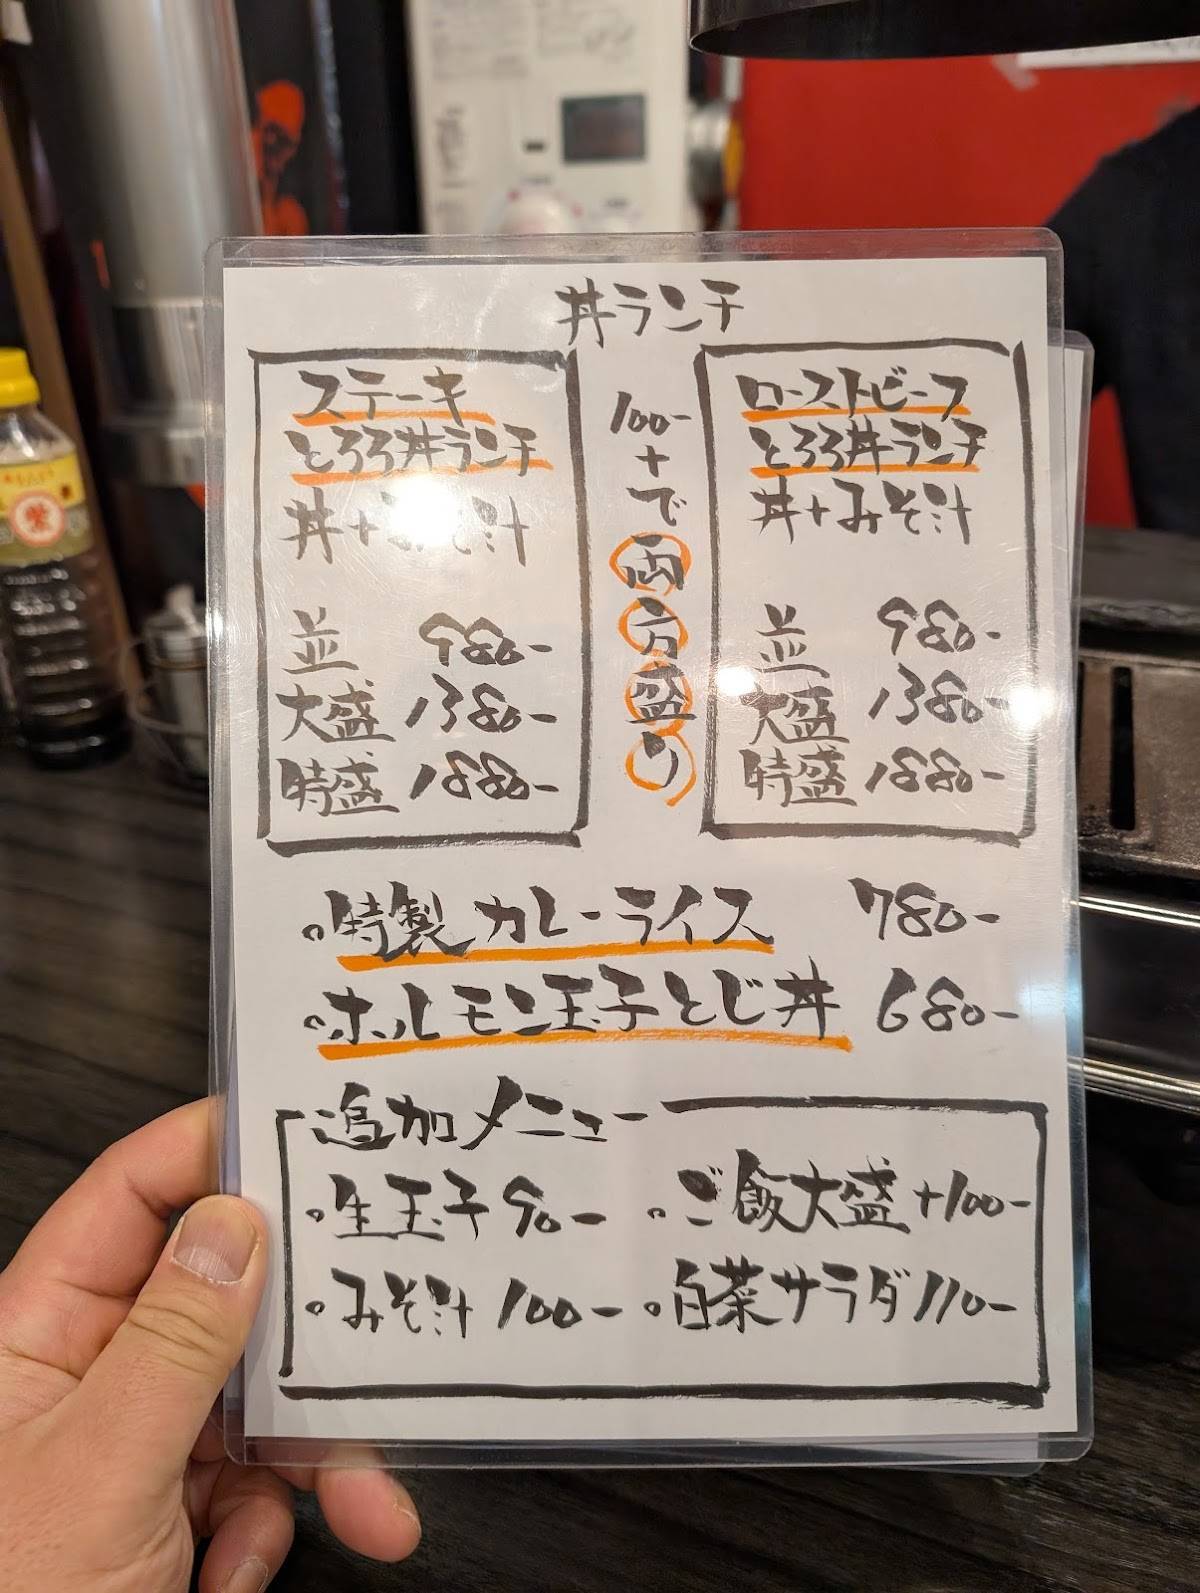 丼ランチ
ステーキ
とろろ丼ランチ
丼+みそ汁
並 980-
大盛 1380-
特盛 1880-
100-
+
で
両
方
盛
り
ローストビーフ
とろろ丼ランチ
丼+みそ汁
並 980-
大盛 1380-
特盛 1880-
。特製カレーライス 780-
。ホルモン玉子とじ丼 680-
追加メニュー
。生玉子 90-
。ご飯大盛 +100-
。みそ汁 100-
。白菜サラダ 110-
紫